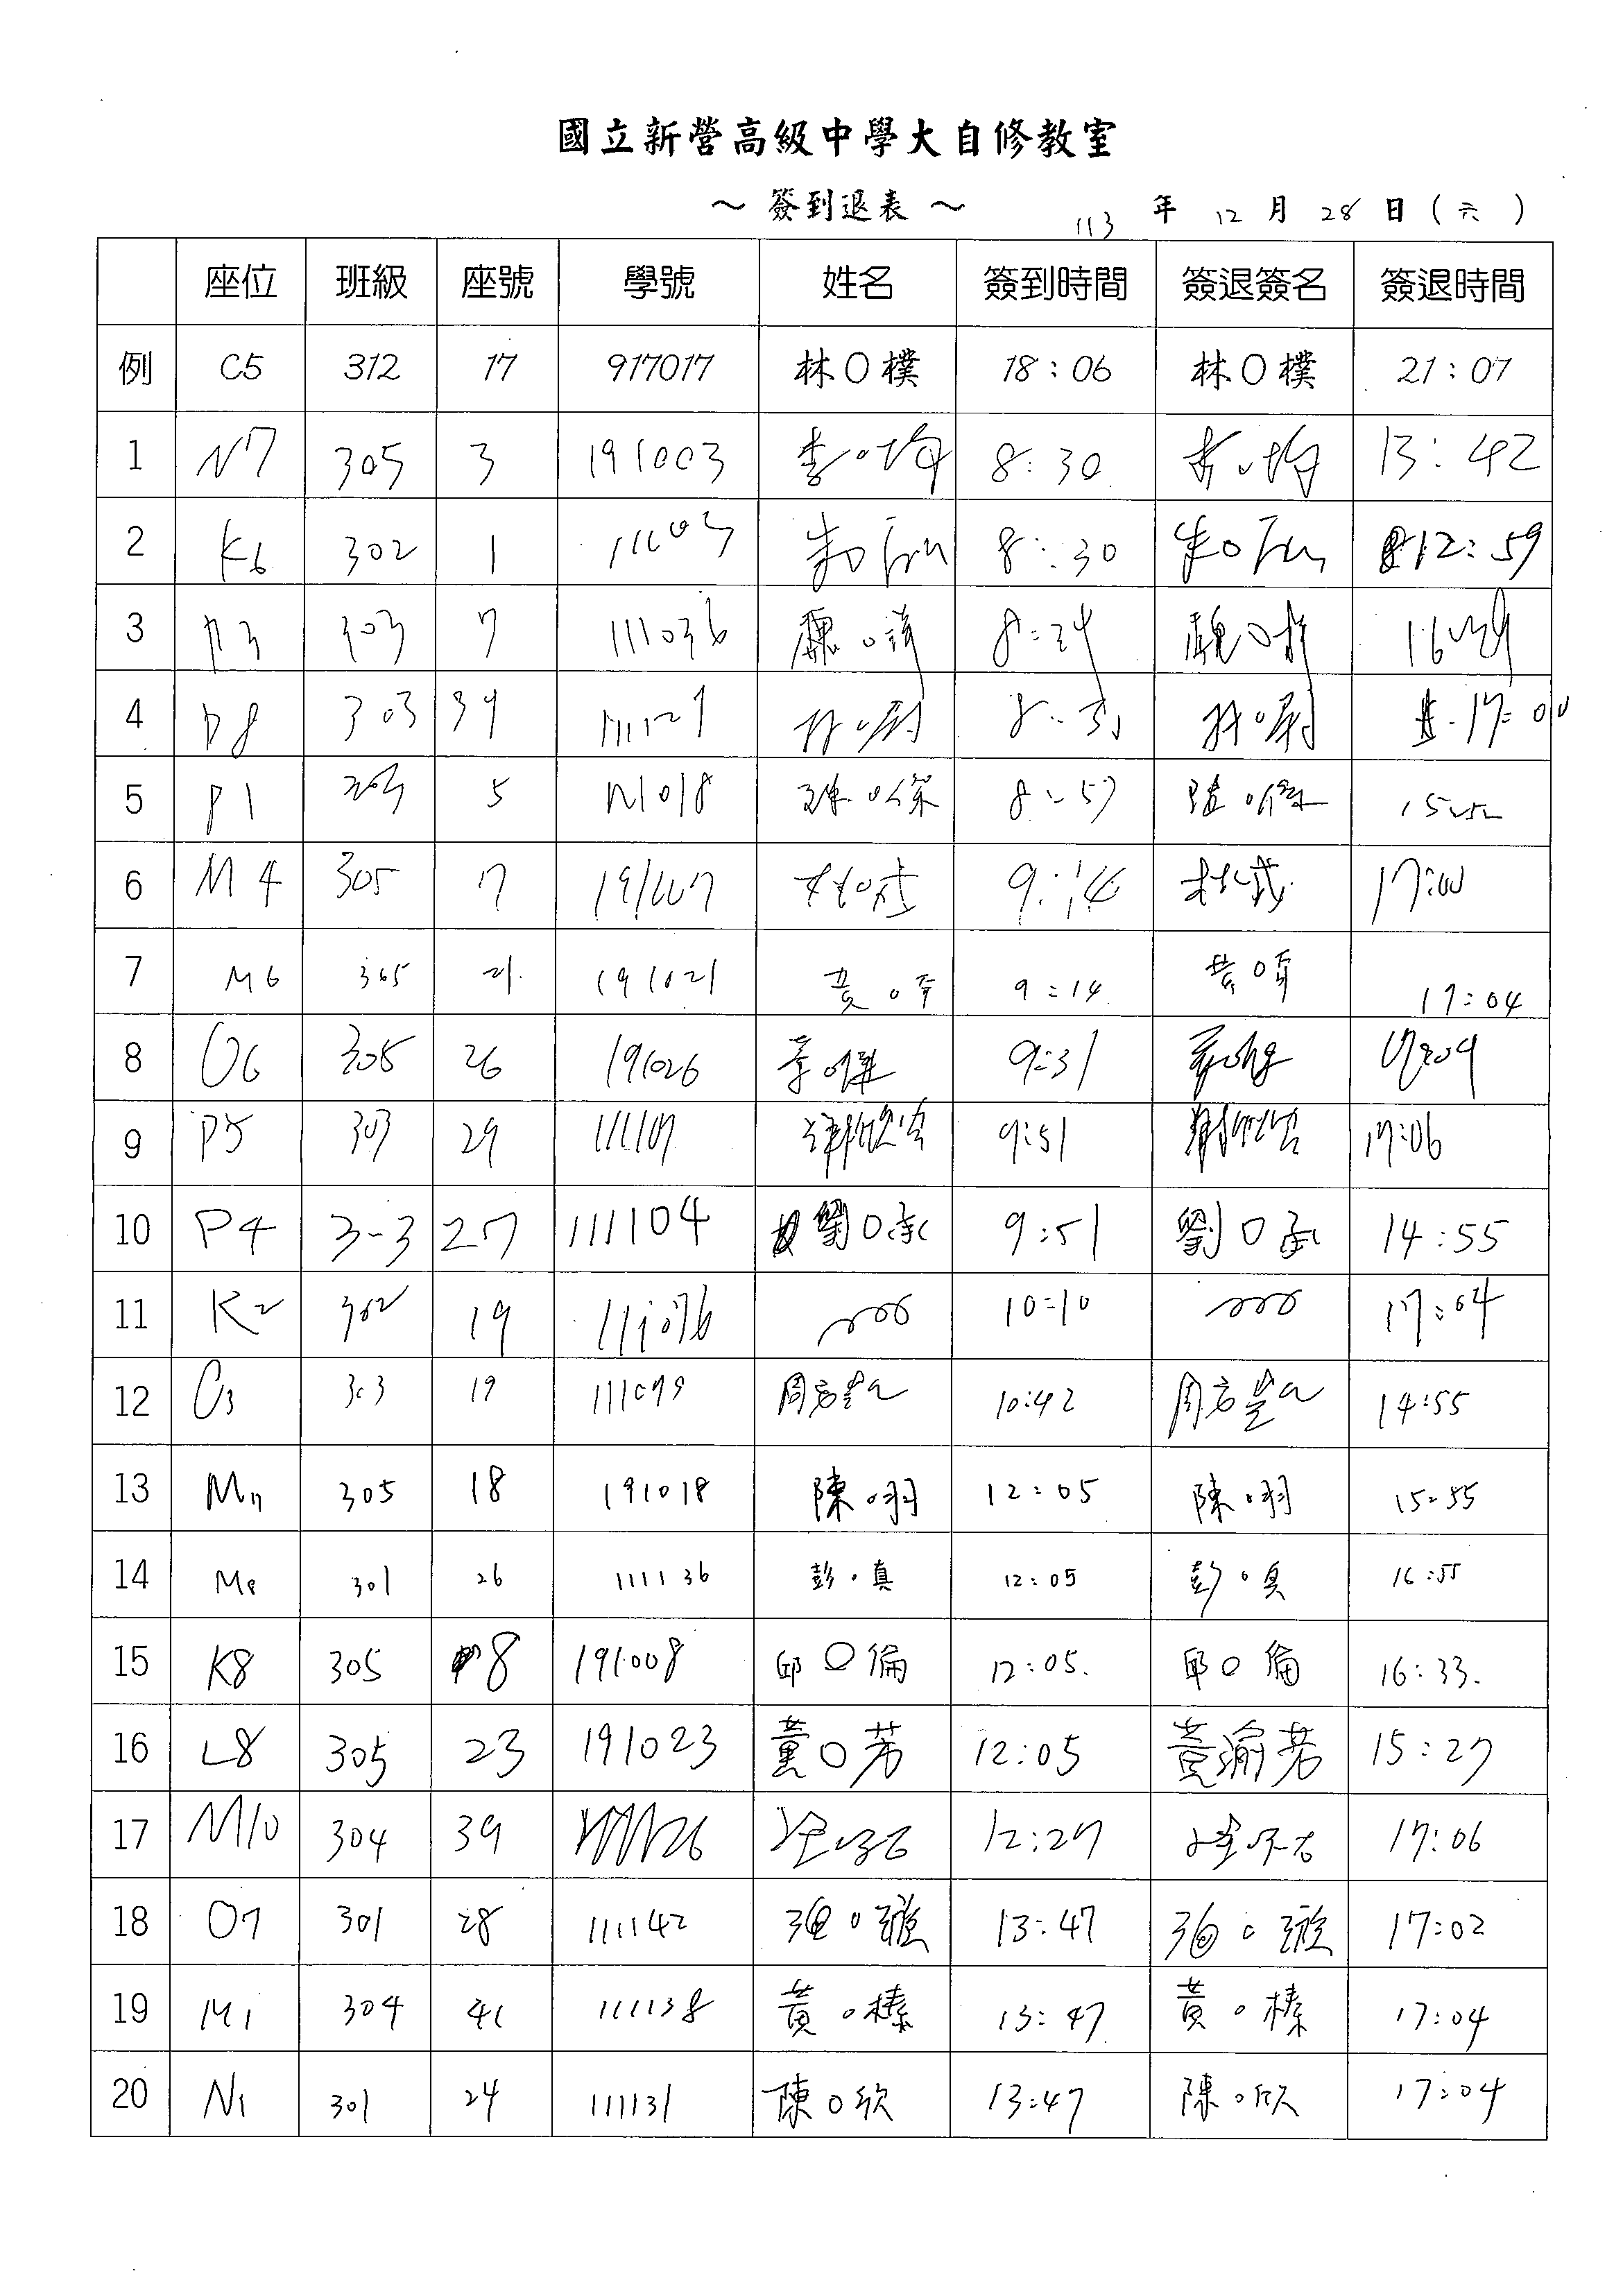 國立新營高級中學大自修教室
～ 簽到退表 ～ 113 年 12 月 28 日 ( 六 )
座位 班級 座號 學號 姓名 簽到時間 簽退簽名 簽退時間
例 C5 312 17 917017 林〇樸 18:06 林〇樸 21:07
1 N7 305 3 191003 李〇均 8:30 李〇均 13:42
2 K6 302 1 8:30 12:59
3 303 7 111036 魏〇 8:34 魏〇
4 P8 303 39 林〇蔚 林〇蔚 17:00
5 P1 303 5 111018 陳〇保 8:57
6 M4 305 7 191007 9:14 17:00
7 M6 305 21 191021 黃〇 9:14 黃〇 17:04
8 O6 305 26 191026 9:31 17:09
9 P5 303 29 111107 9:51 17:06
10 P4 3-3 27 111104 劉〇承 9:51 劉〇承 14:55
11 K2 302 19 111076 〇〇〇 10:10 〇〇〇 17:04
12 O3 303 19 周 10:42 周 14:55
13 M7 305 18 191018 陳〇羽 12:05 陳〇羽 15:55
14 M8 301 26 111136 彭〇真 12:05 彭〇真 16:55
15 K8 305 8 191008 邱〇倫 12:05. 邱〇倫 16:33.
16 L8 305 23 191023 黃〇芳 12:05 黃渝芳 15:27
17 M10 304 39 12:27 17:06
18 O7 301 28 111142 張〇璇 13:47 張〇璇 17:02
19 M1 304 41 111138 黃〇榛 13:47 黃〇榛 17:04
20 N1 301 24 111131 陳〇欣 13:47 陳〇欣 17:04